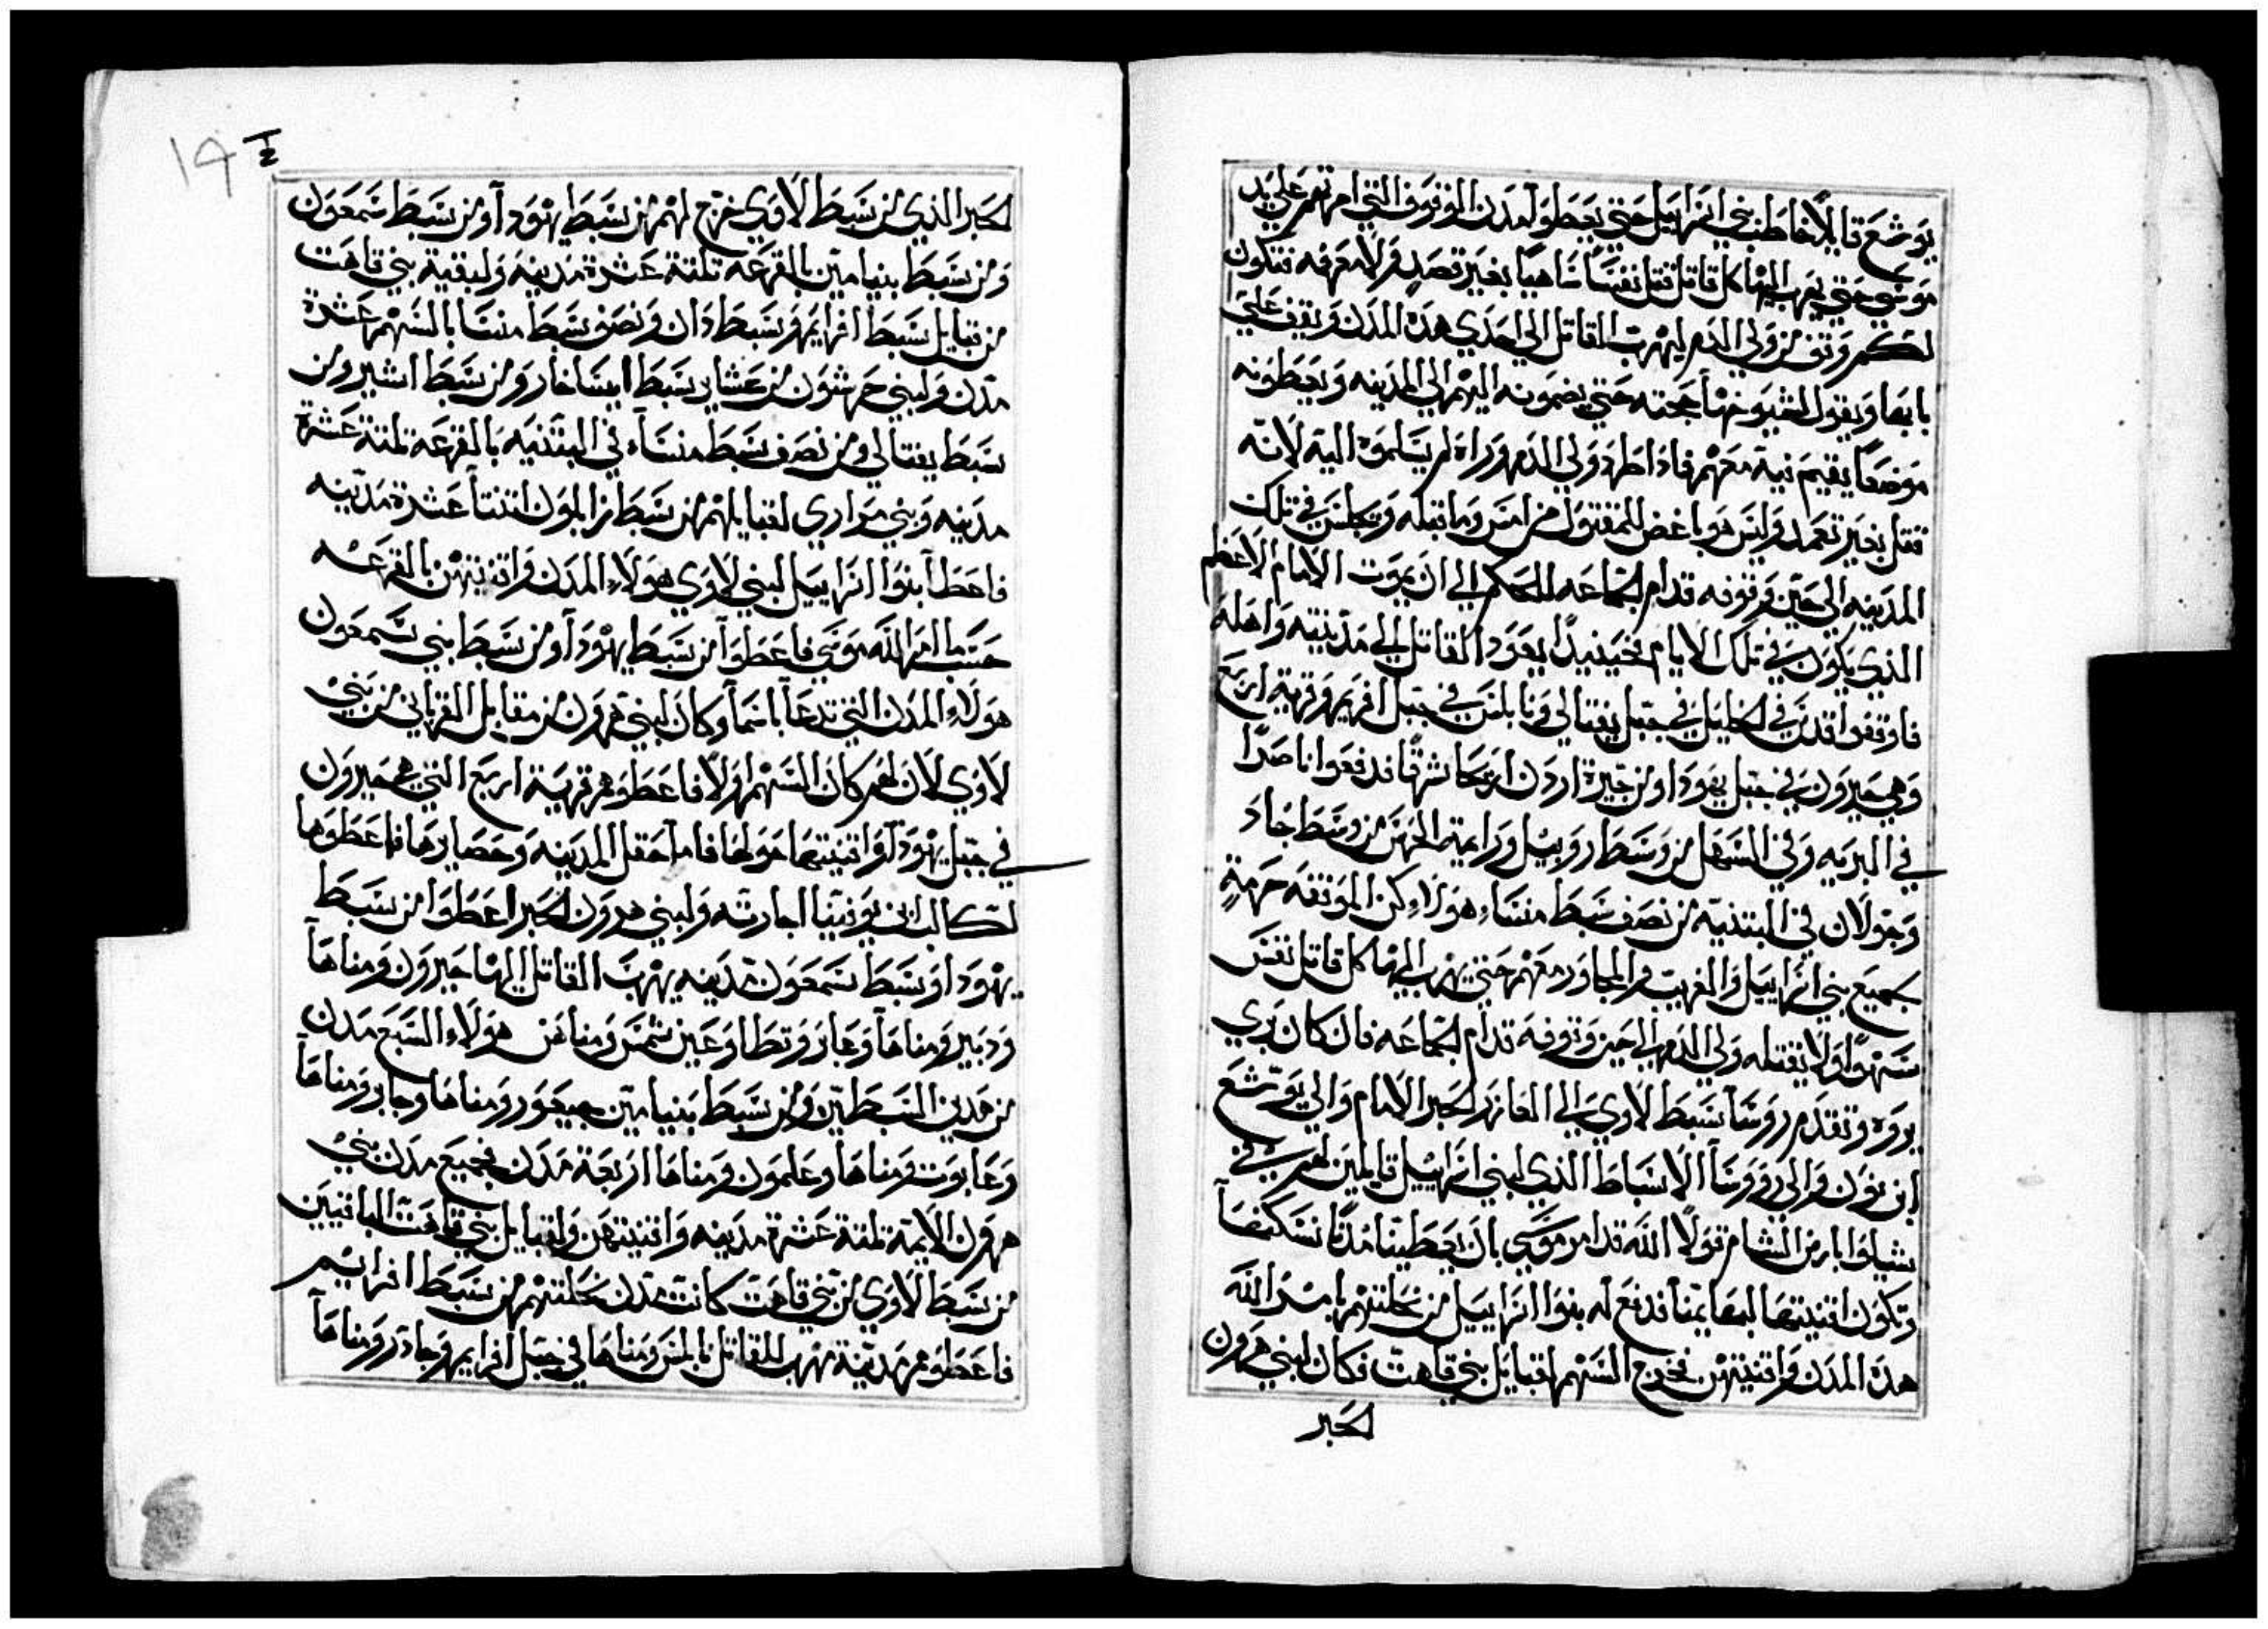 يوشع قايلا خاطب بني اسراييل حتي يعطوا مدن الوقوف التي امرتهم علي يد
موسي حتي يهرب اليها كل قاتل قتل نفسا ساهيا بغير قصد ولا معرفه فتكون
لكم وثق من ولي الدم ليهرب القاتل الي احدي هذه المدن ويقف علي
بابها ويقول لشيوخها حجته حتي يضمونه اليهم الي المدينه ويعطونه
موضعا يقيم فيه معهم فاذا طرد ولي الدم وراه لم يسلموه اليه لانه
قتل بغير تعمد وليس هو باغض للمقتول من امس وما قبله ويجلس في تلك
المدينه الي حين وقوفه قدام الجماعه للحكم الي ان يموت الامام الاعظم
الذي يكون في تلك الايام فحينيذا يعود القاتل الي مدينته واهله
فاوقفوا قدس في الخليل في جبل يفتالي ونابلس في جبل افريم وقرية اربع
وهي حبرون في جبل يهودا ومن جيرة اردن اريحا شرقا فدفعوا ناصرا
في البريه وفي السهل من وسط روبيل ورامية الحرس من وسط جاد
وجولان في البتنيه من نصف سبط منسا هولاء كن الموثقه حرمة
جميع بني اسراييل والغريب والمجاور معهم حتي يهرب اليها كل قاتل نفس
سهوا ولا يقتله ولي الدم الي حين وقوفه قدام الجماعه فان كان بري
بروه وتقدم روسا سبط لاوي الي العازر الحبر الامام والي يوشع
ابن نون والي روسا الاسباط الذي لبني اسراييل قايلين لهم في
شيلوا بارض الشام قولا الله قد امر موسي بان يعطينا مدنا نسكنها
وتكون اقنيتها لبهايمنا فدفع له بنوا اسراييل من نحلتهم بامر الله
هذه المدن واقنيتهن فخرج السهم لقبايل بني قاهت فكان لبني هرون
الحبر
١٩
الحبر الذي من سبط لاوي خرج لهم من سبط يهودا ومن سبط سمعون
ومن سبط بنيامين بالقرعه تلتة عشرة مدينه ولبقية بني قاهت
من قبايل سبط افرايم وسبط دان ونصف سبط منسا بالسهم عشرة
مدن ولبني جرشون من عشاير سبط ايساخار ومن سبط اشير ومن
سبط يفتالي ومن نصف سبط منسا في البتنيه بالقرعه تلتة عشرة
مدينه وبني مراري لقبايلهم من سبط زابلون اتنتا عشرة مدينه
فاعطا بنوا اسراييل لبني لاوي هولاء المدن واقنيتهن بالقرعه
حسب ما امر الله موسي فاعطوا من سبط يهودا ومن سبط بني سمعون
هولاء المدن التي تدعا باسما وكان لبني هرون من مقابل القرباني من بني
لاوي لان لهم كان السهم اولا فاعطوهم قرية اربع التي هي حبرون
في جبل يهودا واقنيتها حولها فاما حقل المدينه وحصايرها فاعطوها
لكالب ابن يوفنيا اجارته ولبني هرون الحبر اعطوا من سبط
يهودا وسبط سمعون مدينه يهرب القاتل اليها حبرون ومناها
ودبير ومناها وعار وتطا وعين شمس ومنافن هولاء السبع مدن
من هدين السبطين ومن سبط بنيامين جبعور ومناها وجابر ومناها
وعابوت ومناها وعلمون ومناها اربعة مدن فجميع مدن بني
هرون الايمة تلتة عشرة مدينه واقنيتهن ولقبايل بني قاهت الباقيين
من سبط لاوي من بني قاهت كانت مدن نحلتهم من سبط افرايم
فاعطوهم مدينة مهرب للقاتل نابلس ومناها في جبل افرايم وجادر ومناها